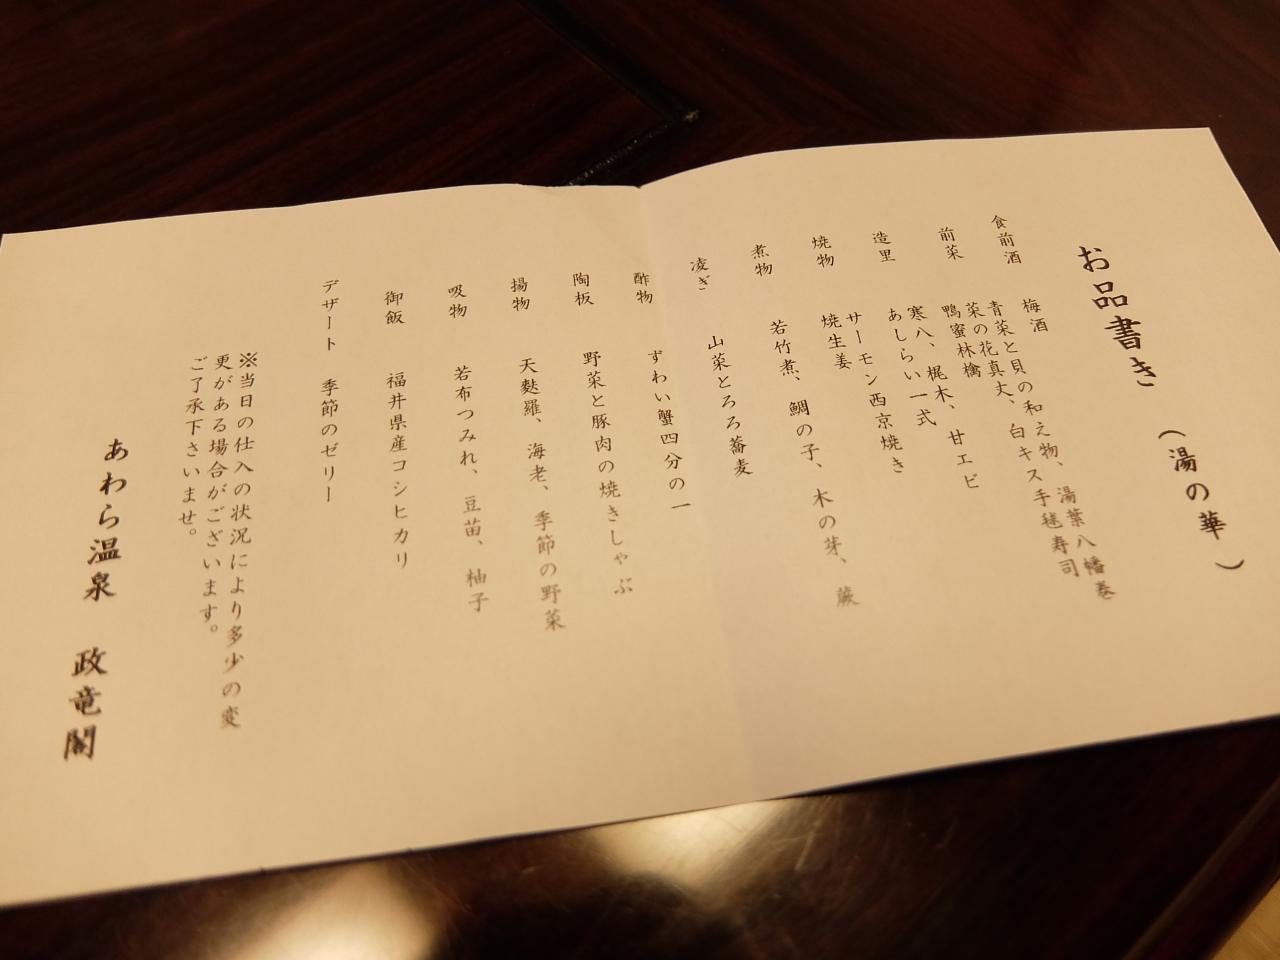 お品書き (湯の華)
食前酒 梅酒
前菜 青菜と貝の和え物、湯葉八幡巻
菜の花真丈、白キス手毬寿司
鴨蜜林檎
造里 寒八、梶木、甘エビ
あしらい一式
焼物 サーモン西京焼き
焼生姜
煮物 若竹煮、鯛の子、木の芽、蕨
凌ぎ 山菜とろろ蕎麦
酢物 ずわい蟹四分の一
陶板 野菜と豚肉の焼きしゃぶ
揚物 天麩羅、海老、季節の野菜
吸物 若布つみれ、豆苗、柚子
御飯 福井県産コシヒカリ
デザート 季節のゼリー
※当日の仕入の状況により多少の変
更がある場合がございます。
ご了承下さいませ。
あわら温泉 政竜閣